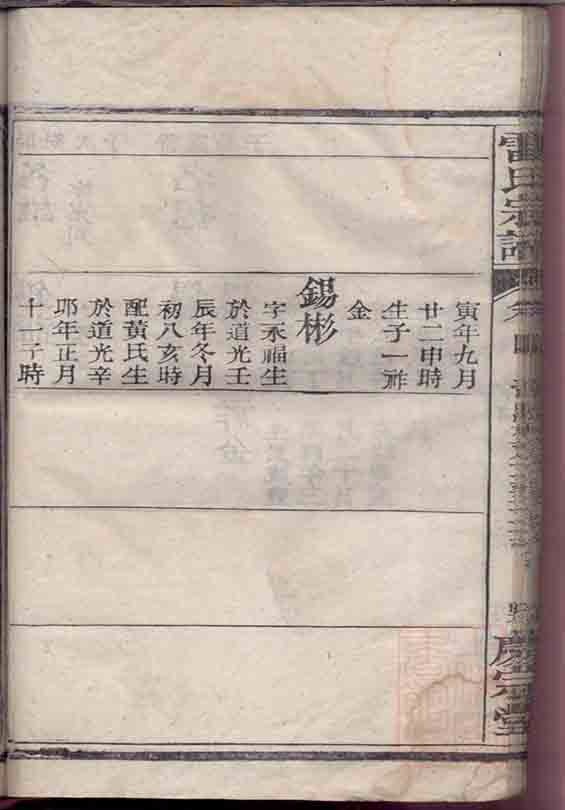 雷氏宗譜
卷
四
慶宗堂
寅年九月
廿二申時
生子一祚
金
錫彬
字永福生
於道光壬
辰年冬月
初八亥時
配黃氏生
於道光辛
卯年正月
十一子時